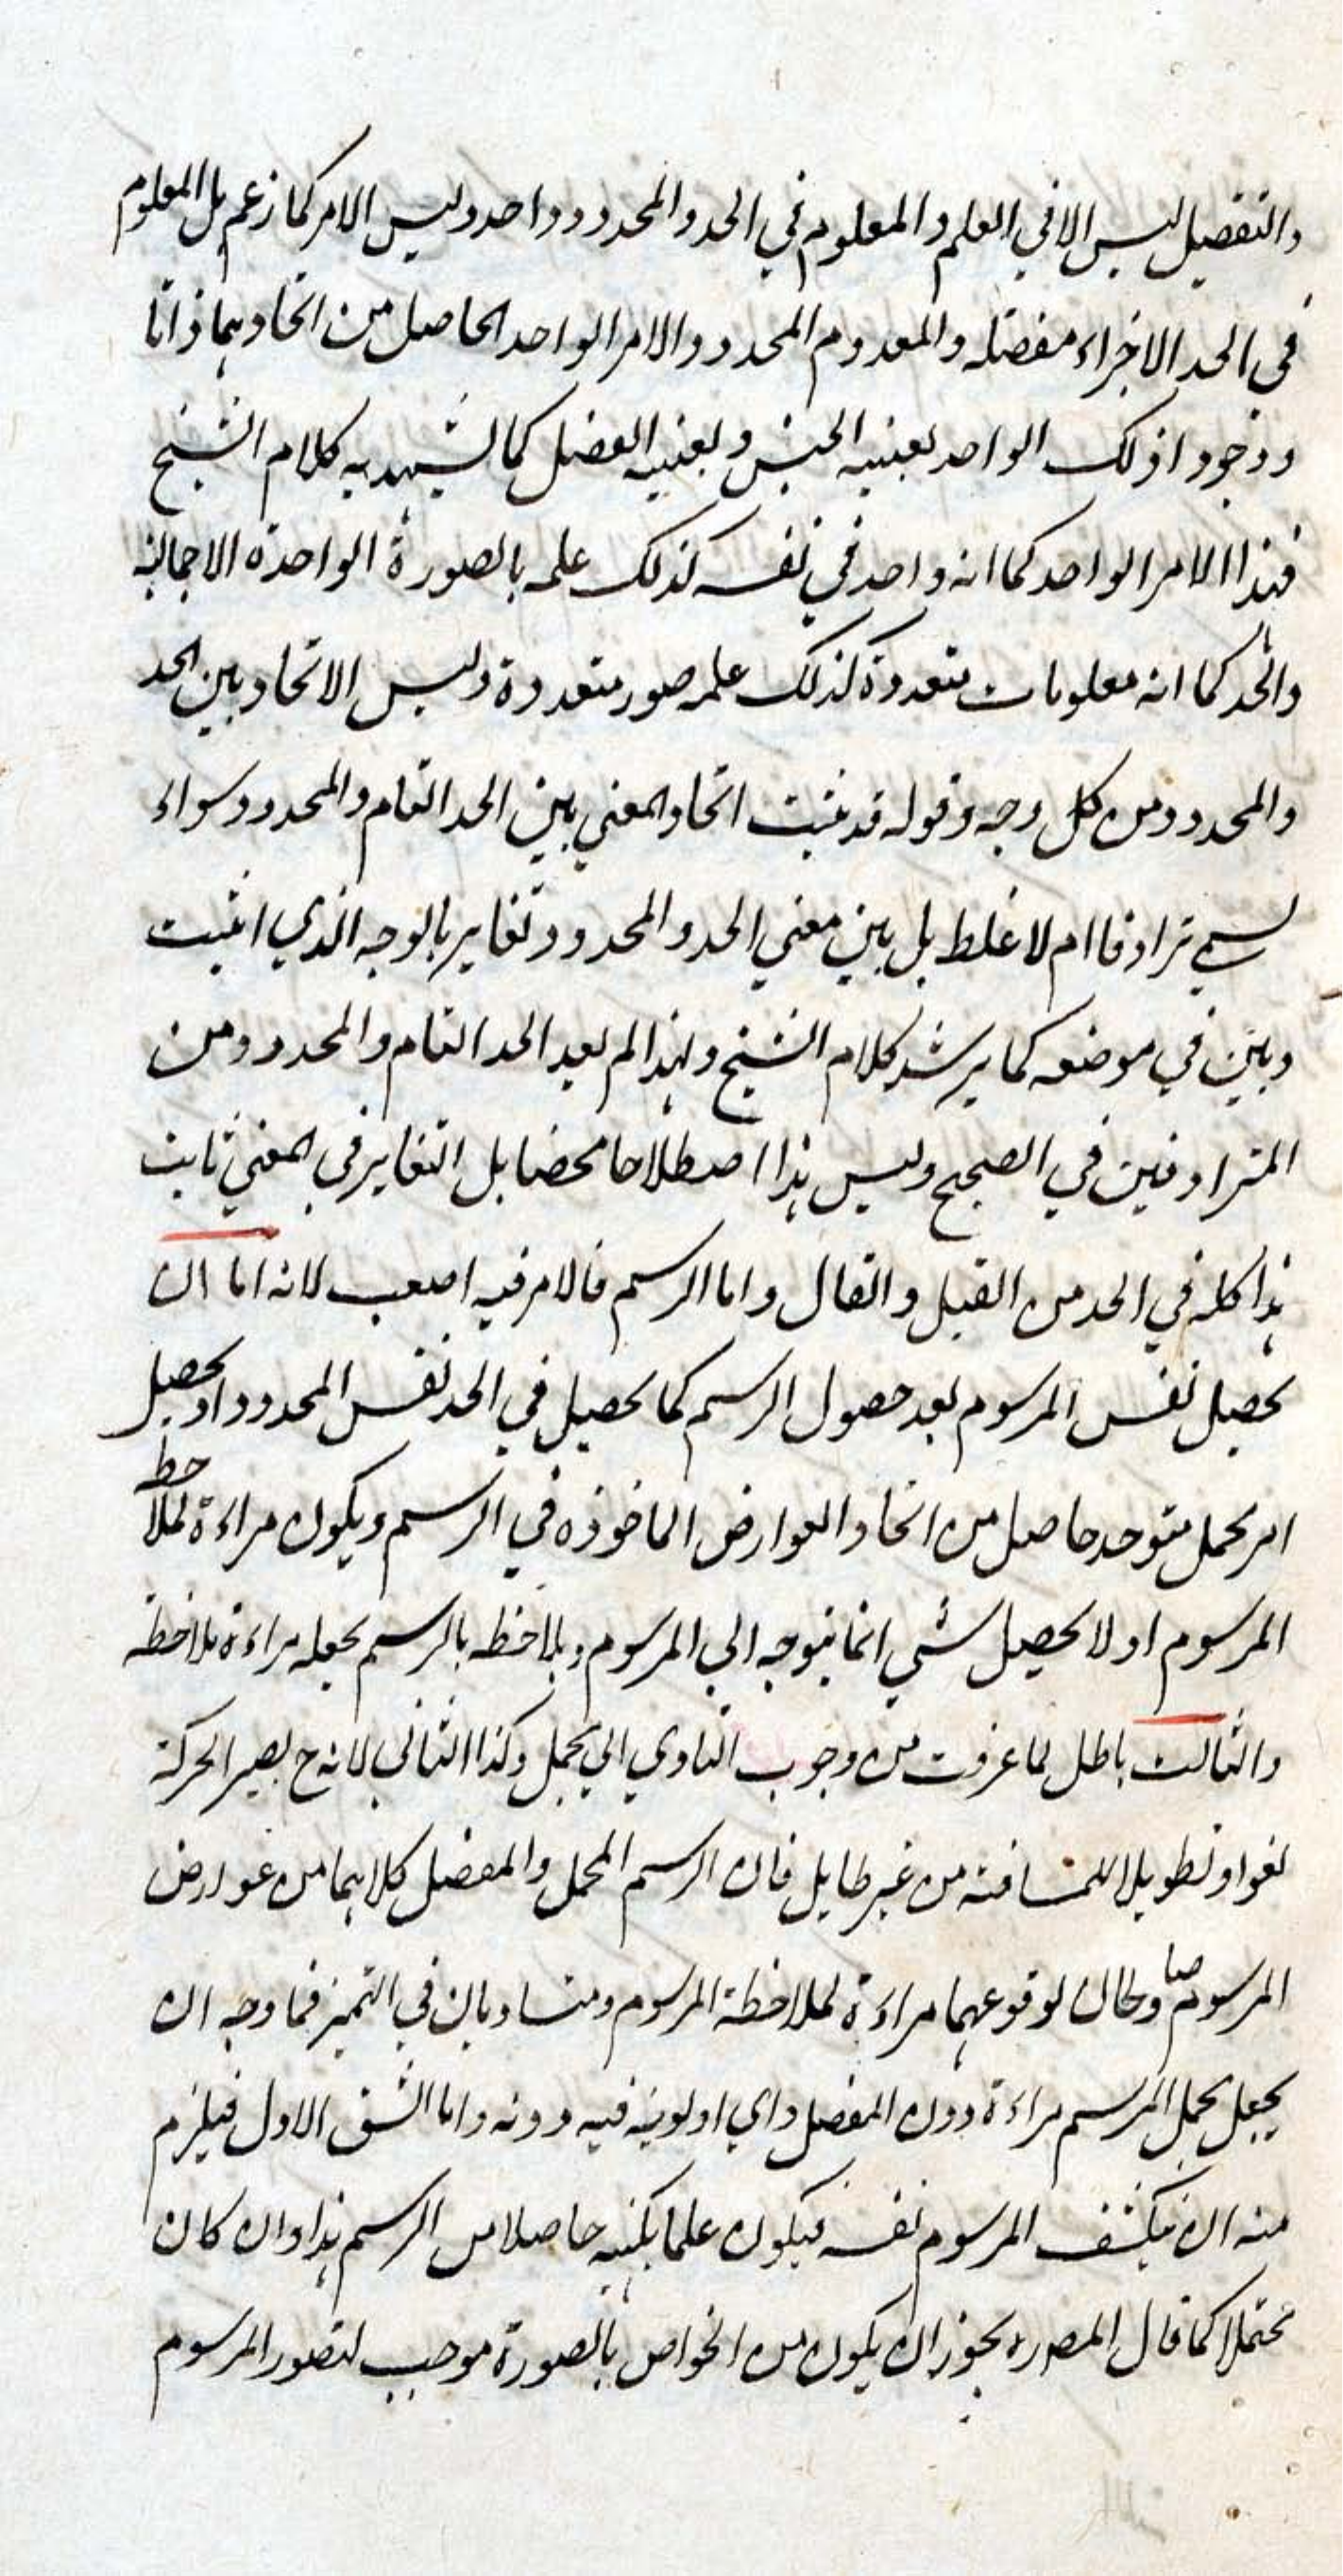 والتفصيل ليس الا في العلم والمعلوم في الحد والمحدود واحد وليس الامر كما زعم بل المعلوم
في الحد الاجزاء مفصله والمعدوم المحدود والامر الواحد الحاصل من اتحادهما ذاتا
ووجودا ذلك الواحد بعينيه الجنس وبعينيه الفصل كما يشهد به كلام الشيخ
فهذا الامر الواحد كما انه واحد في نفسه كذلك علمه بالصورة الواحدة الاجمالية
والحد كما انه معلومات متعددة كذلك علمه صور متعددة وليس الاتحاد بين الحد
والمحدود من كل وجه وقوله قد ثبت اتحاد المعني بين الحد التام والمحدود سواء
يسمي ترادفا ام لا غلط بل بين معني الحد والمحدود تغاير بالوجه الذي اثبت
وبين في موضعه كما يرشد كلام الشيخ ولهذا لم يعد الحد التام والمحدود من
المترادفين في الصحيح وليس هذا اصطلاحا محضا بل التغاير في المعني ثابت
هذا كله في الحد من القيل والقال واما الرسم فالامر فيه اصعب لانه اما ان
يحصل نفس المرسوم بعد حصول الرسم كما يحصل في الحد نفس المحدود او يحصل
امر مجمل متوحد حاصل من اتحاد العوارض الماخوذه في الرسم ويكون مراءة لملاحظ
المرسوم او لا يحصل شي انما يتوجه الي المرسوم ويلاحظه بالرسم يجعله مراءة ملاحظة
والثالث باطل لما عرفت من وجوب التادي الي مجمل وكذا الثاني لانه ح يصير الحركة
لغوا وتطويلا للمسافته من غير طايل فان الرسم المجمل والمفصل كلاهما من عوارض
المرسوم صا وصالحان لوقوعهما مراءة لملاحظة المرسوم ومتساويان في التميز فما وجه ان
يجعل مجمل المرسم مراءة دون المفصل واي اولوية فيه دونه واما الشق الاول فيلزم
منه ان ينكشف المرسوم نفسه فيكون علما بكنهه حاصلا من الرسم هذا وان كان
محتملا كما قال المصره يجوز ان يكون من الخواص بالصورة موجب لتصور المرسوم